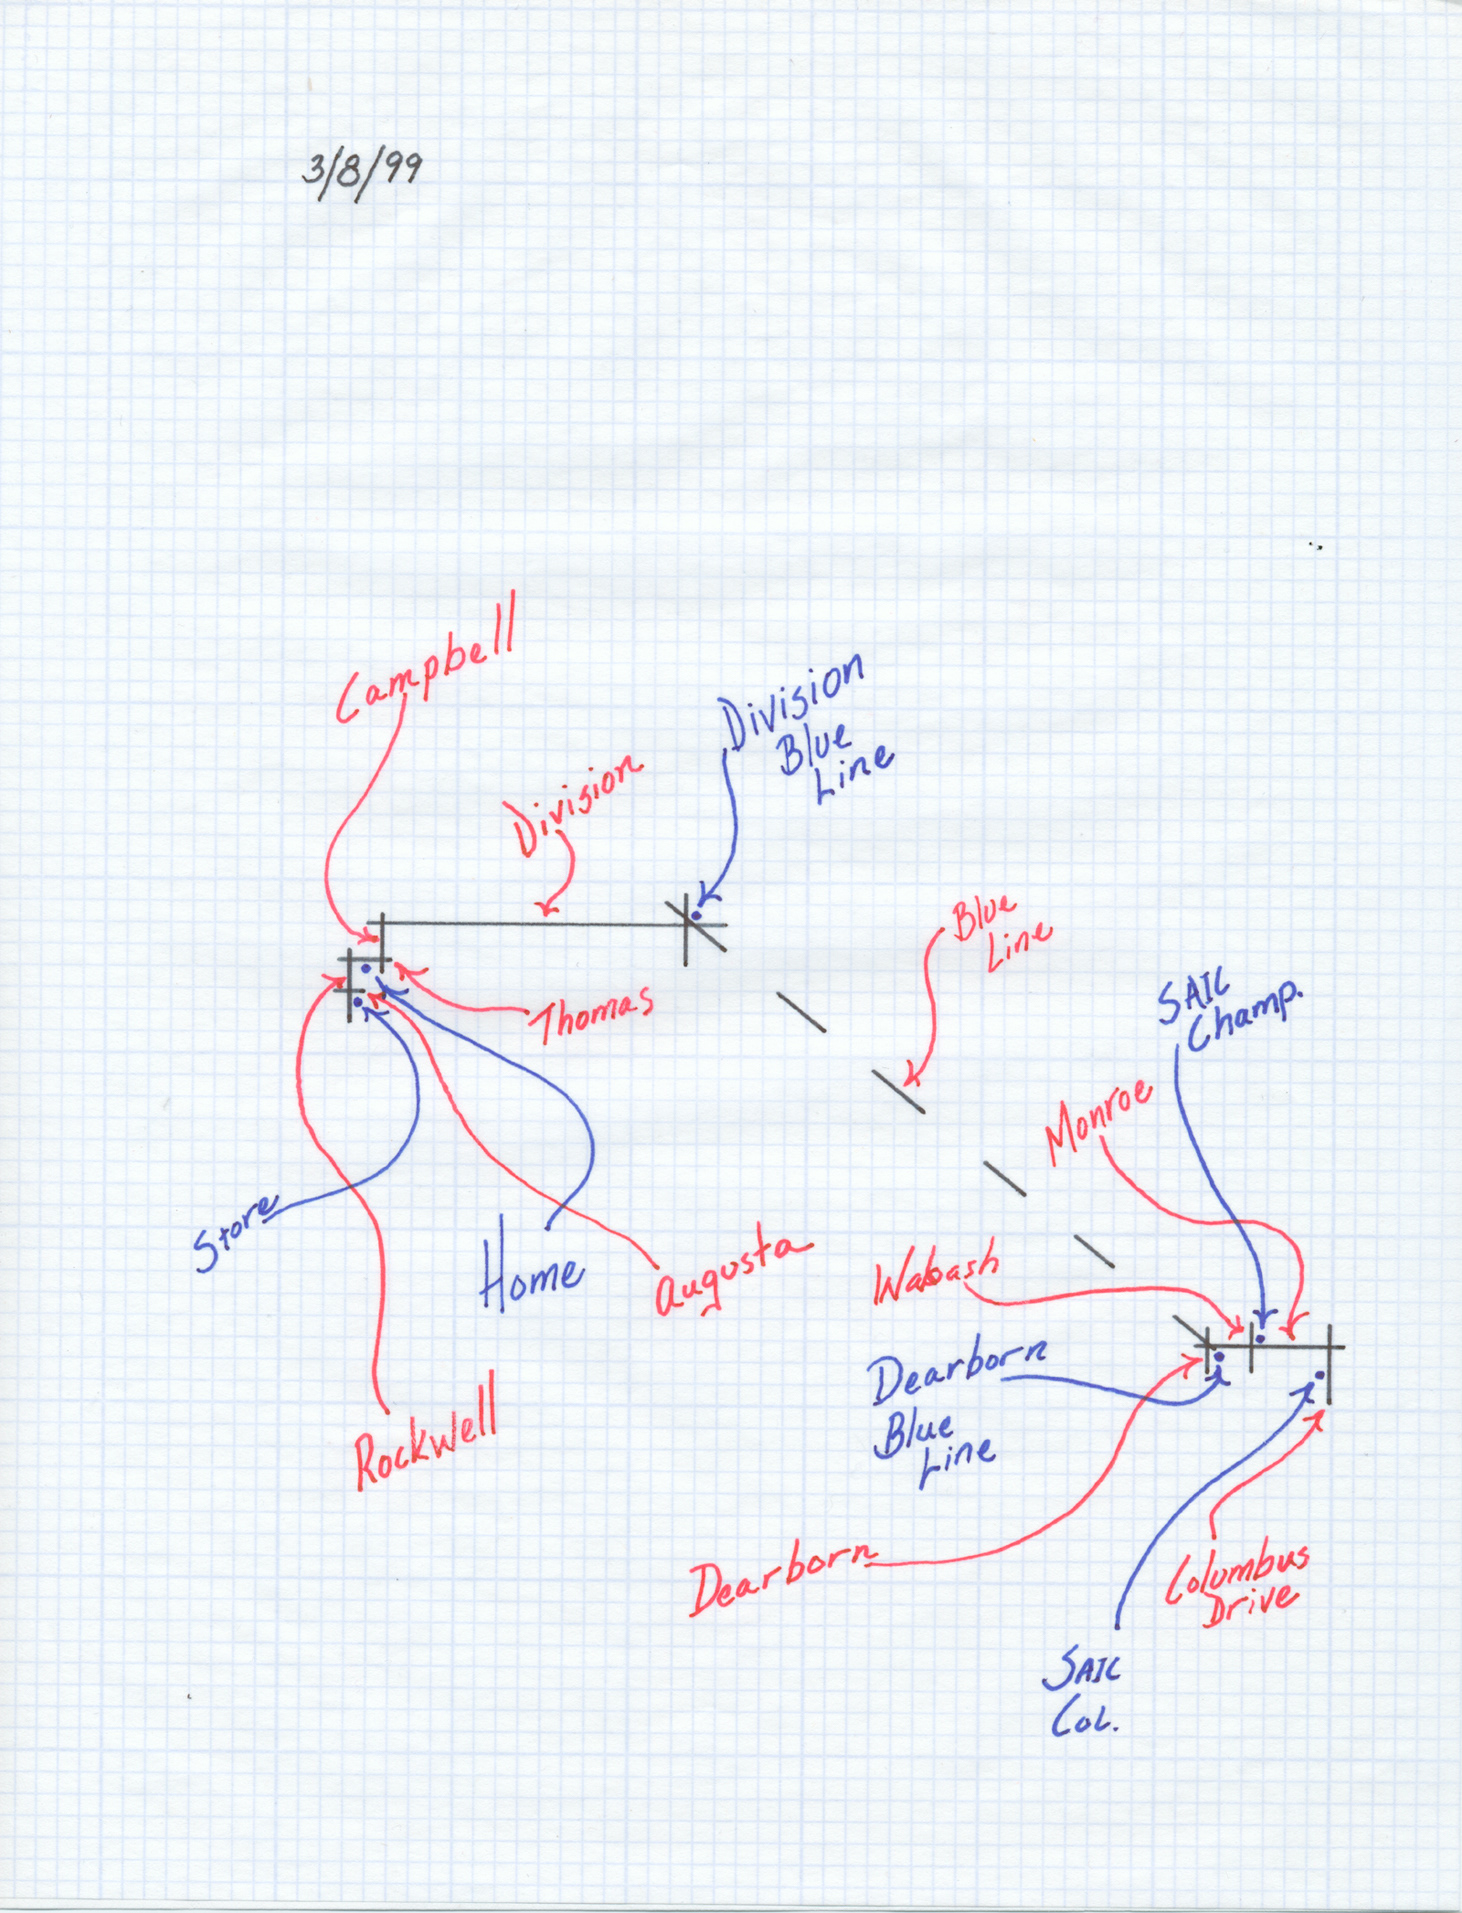 3/8/99
Campbell
Division
Blue
Line
Division
Blue
Line
Thomas
SAIC
Champ.
Monroe
Store
Home
Augusta
Wabash
Dearborn
Blue
Line
Rockwell
Dearborn
Columbus
Drive
SAIC
Col.